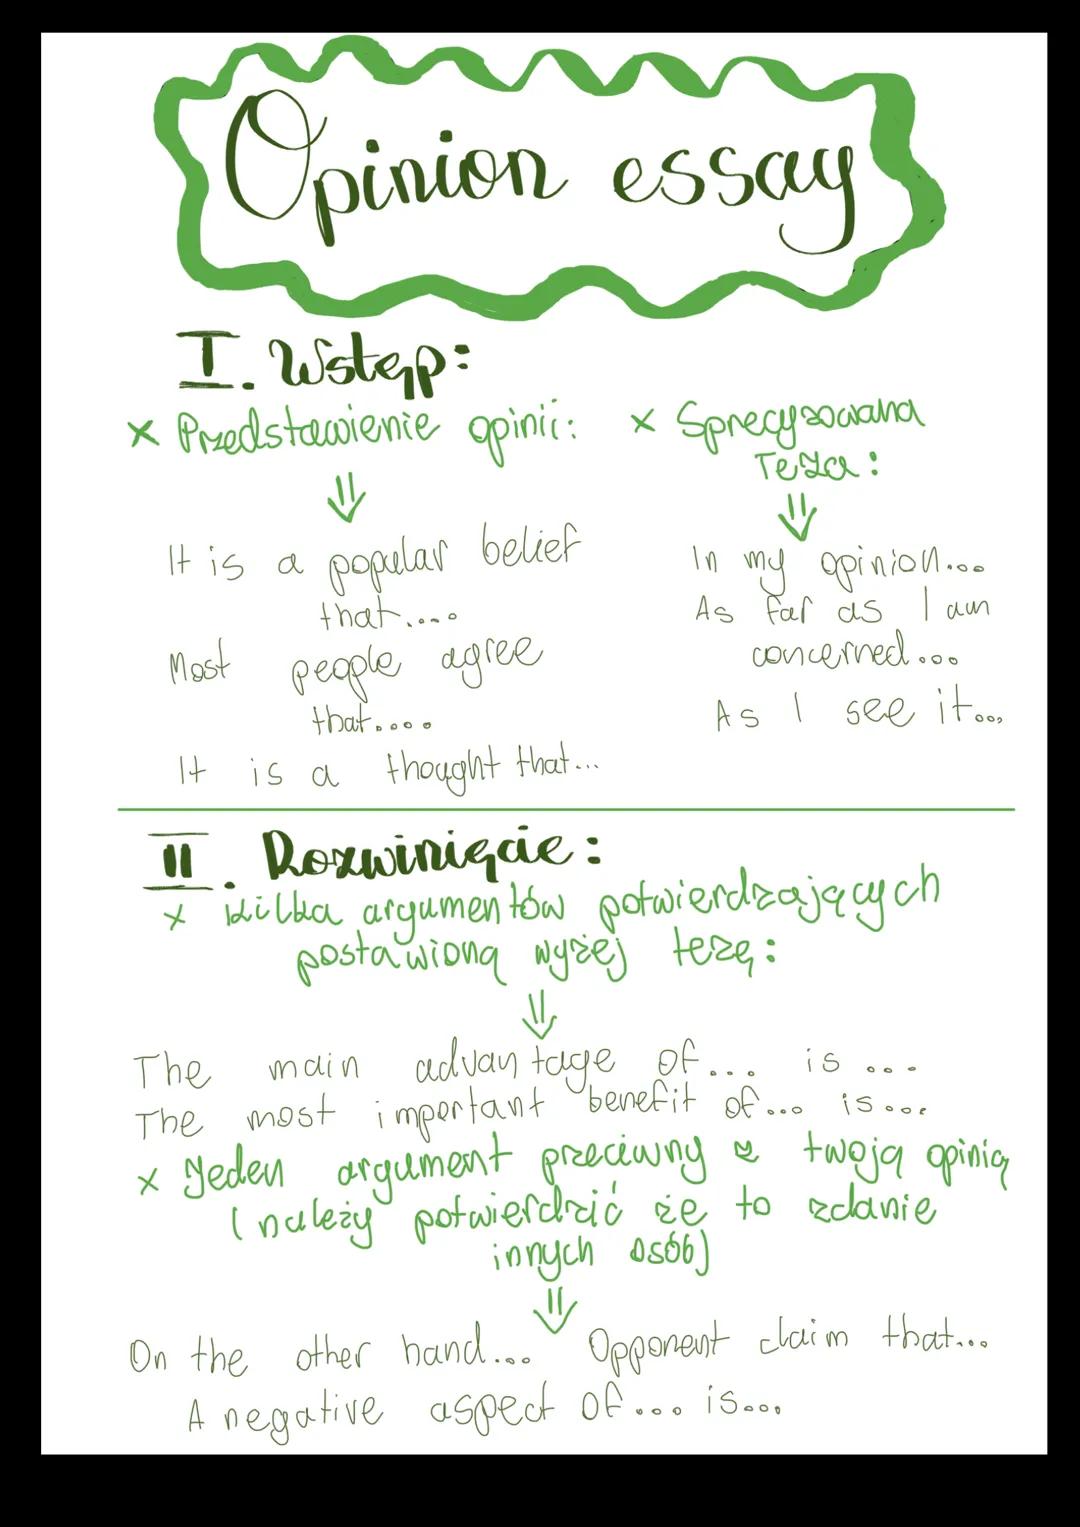 Opinion essay
I. Wstęp:
x Przedstawienie opinii:
⇓
It is a popular belief
that....
Most people agree
that....
It is a thought that...
x Sprecyzowana
Teza:
⇓
In my opinion...
As far as I am
concerned...
As I see it...
II. Rozwinięcie:
x kilka argumentów potwierdzających
postawioną wyżej tezę:
⇓
The main advantage of... is ...
The most important benefit of... is...
x Jeden argument przeciwny z twoją opinią
(należy potwierdzić że to zdanie
innych osób)
⇓
On the other hand... Opponent claim that...
A negative aspect of... is...